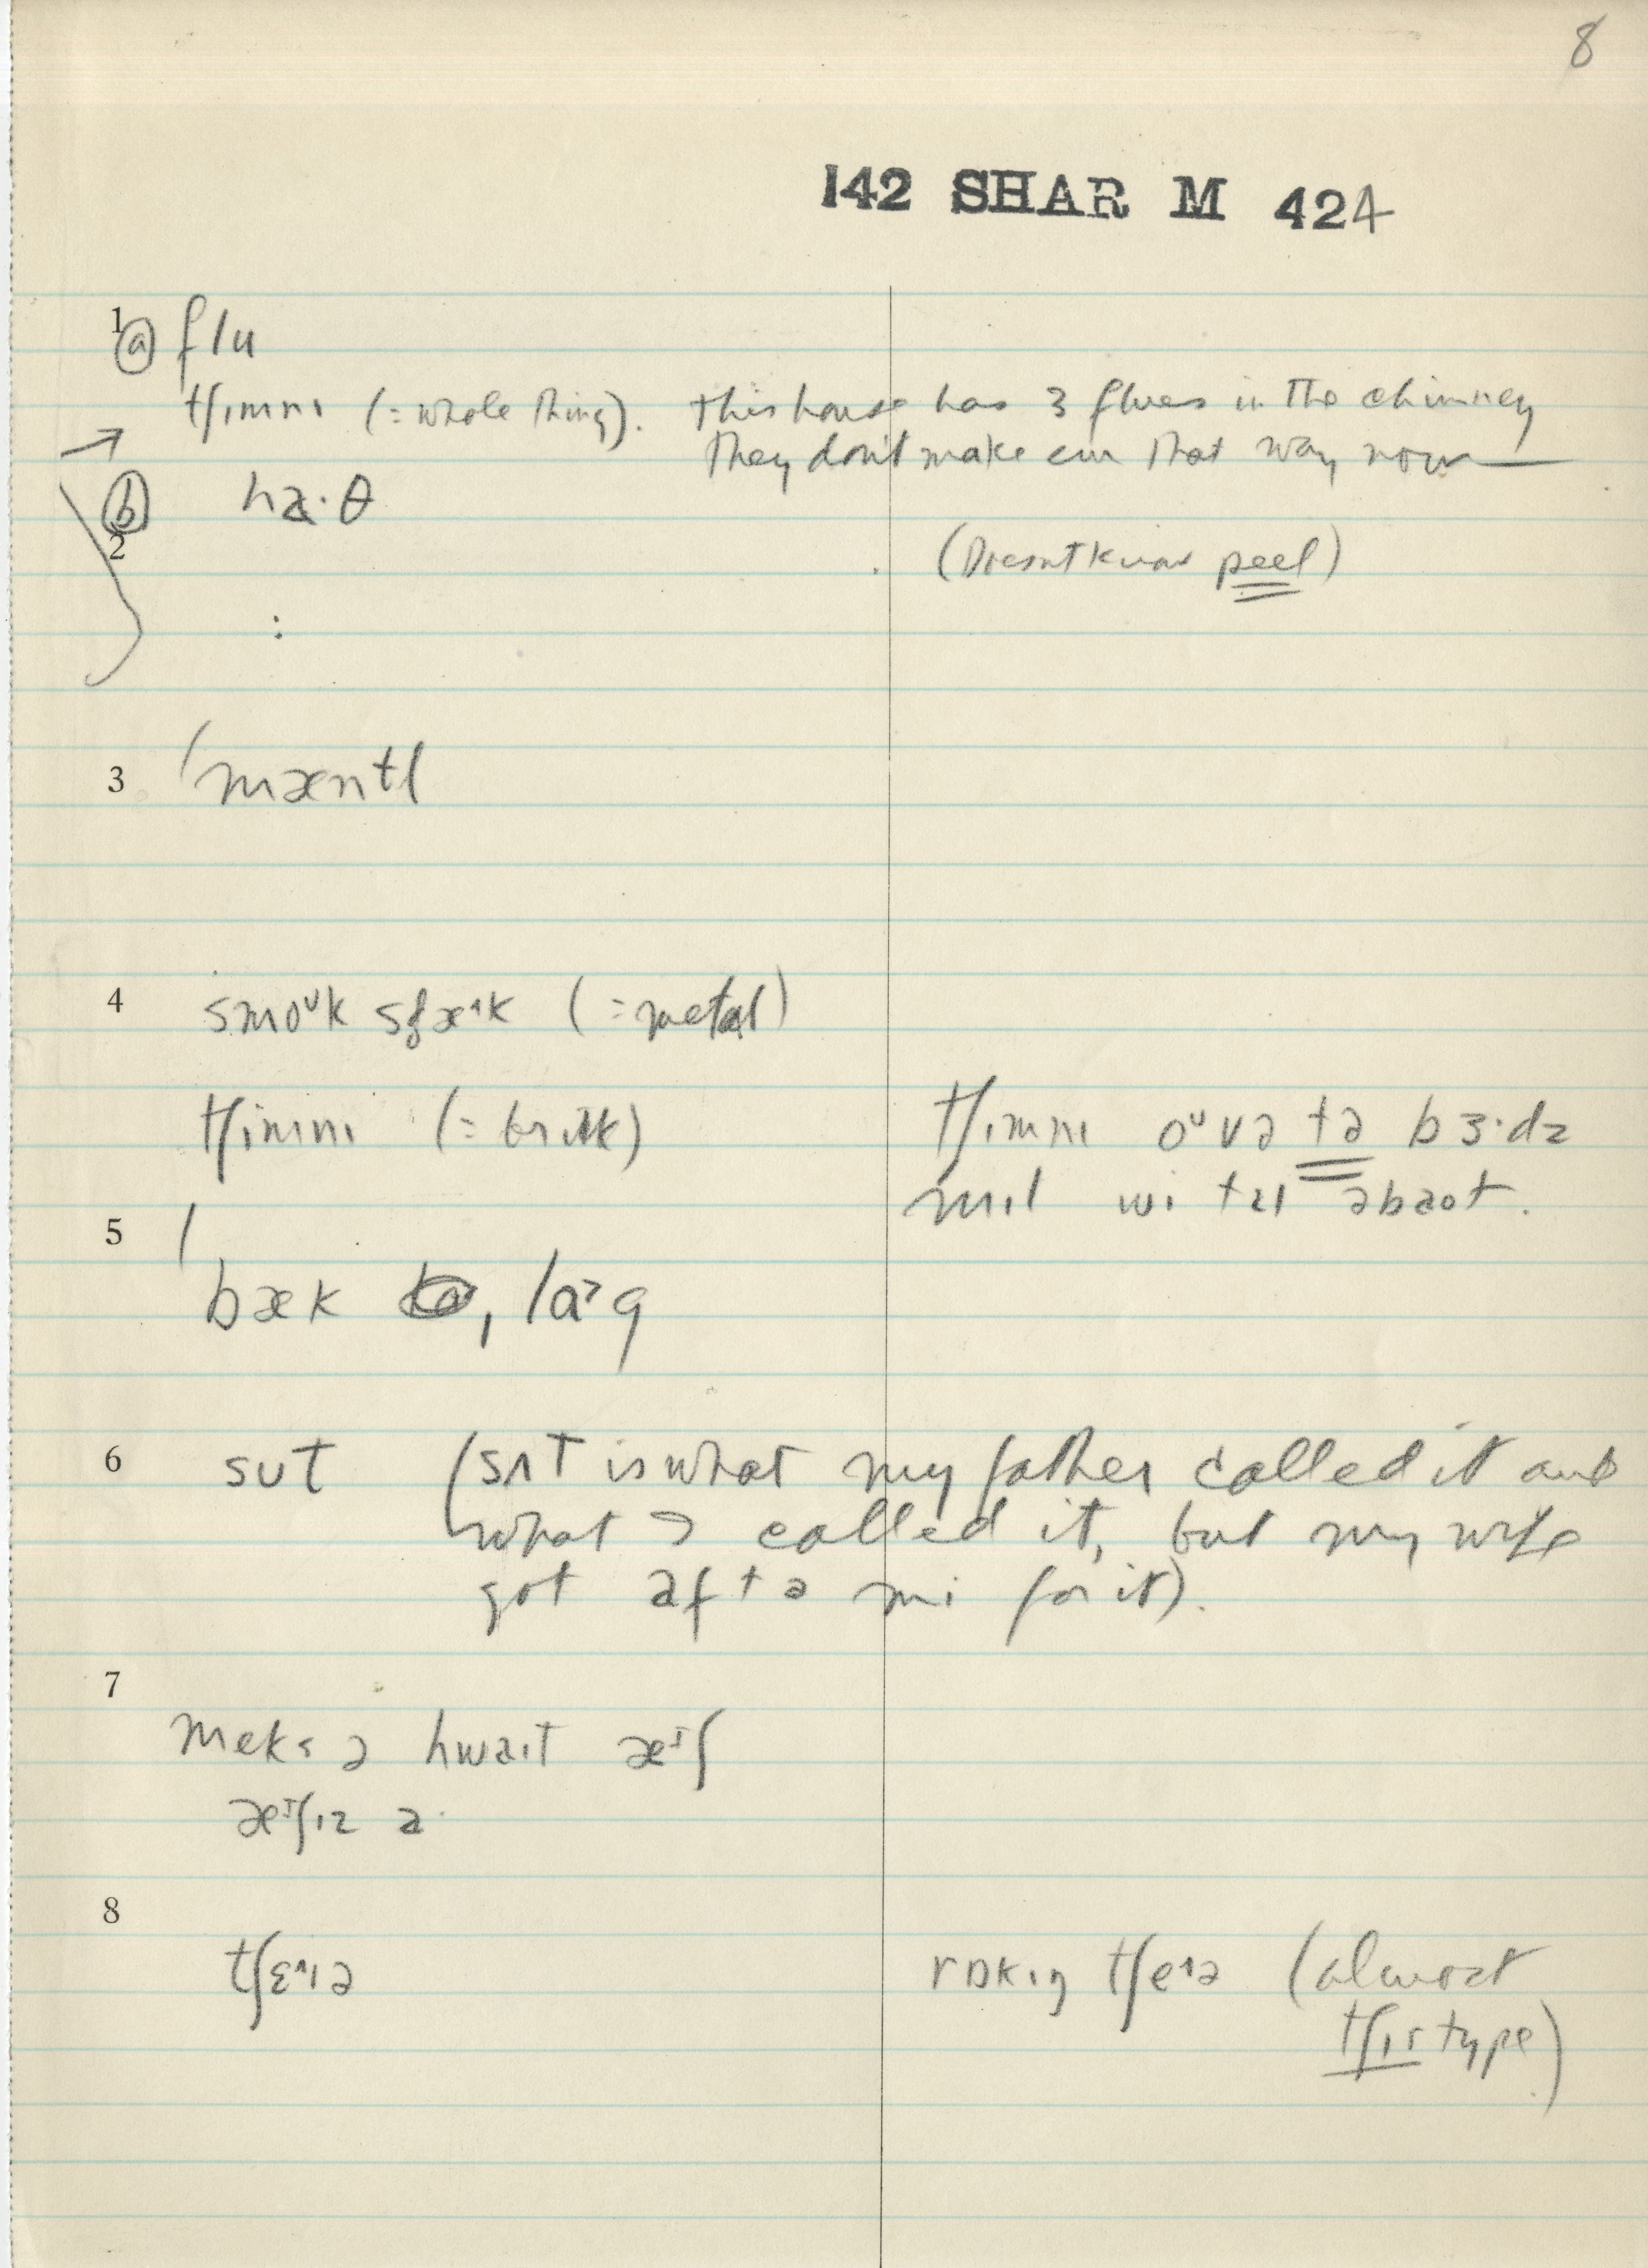 8
142 SHAR M 424
1 ⓐ flu
tʃɪmnɪ (= whole thing). This house has 3 flues in the chimney
They don't make em that way now
→
ⓑ ha·θ
2 (Doesn't know peel)
:
3 mæntl
4 smoᵘk (= metal)
tʃɪmnɪ (= brick) tʃɪmnɪ oᵘvə tə bɜ·dz
mɪl wi abaot.
5
bæk , lɑ˃g
6 sut (sʌt is what my father called it and
what I called it, but my wife
got aftə mi for it).
7
meks ə hwait æᶦʃ
æᶦʃɪz a·
8
tʃɛ^ɪə rɒkɪŋ tʃe^ə (almost
tʃɪr type)